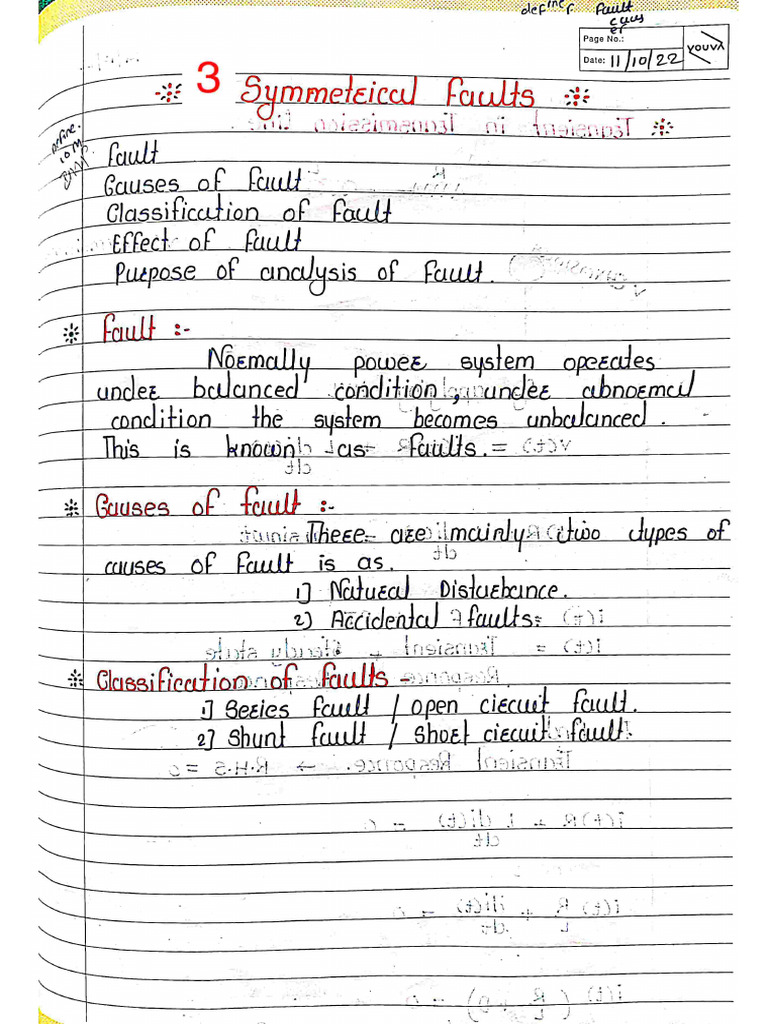 define fault
Page No.:
Date: 11/10/22
YOUVA
3 Symmetrical Faults
define
10 M
Fault
Causes of fault
Classification of fault
Effect of fault
Purpose of analysis of Fault.
Fault :-
Normally power system operates
under balanced condition, under abnormal
condition the system becomes unbalanced.
This is known as faults.
Causes of fault :-
There are mainly two types of
causes of fault is as.
1] Natural Disturbance.
2) Accidental faults.
Classification of faults -
1] Series fault / open circuit fault.
2] Shunt fault / short circuit fault.